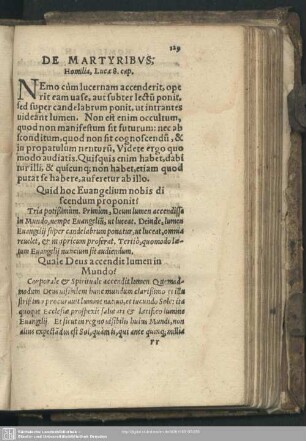 189
DE MARTYRIBVS.
Homilia, Lucæ 8. cap.
NEmo cùm lucernam accenderit, ope
rit eam uase, aut subter lectũ ponit,
sed super candelabrum ponit, ut intrantes
uideant lumen. Non est enim occultum,
quod non manifestum sit futurum: nec ab
sconditum, quod non sit cognoscendũ, &
in propatulum uenturũ, Videte ergo quo
modo audiatis. Quisquis enim habet, dabi
tur illi: & quicunq; non habet, etiam quod
putat se habere, auferetur ab illo.
Quid hoc Euangelium nobis di
scendum proponit?
Tria potissimum. Primùm, Deum lumen accendisse
in Mundo, nempe Euangeliũ, ut luceat. Deinde, lumen
Euangelij super candelabrum ponatur, ut luceat, omnia
reuelet, & in apricum proferat. Tertiò, quomodo læ-
tum Euangelij nuncium sit audiendum.
Quale Deus accendit lumen in
Mundo?
Corporale & Spirituale accendit lumen. Quemad-
modum Deus uisibilem hunc mundum
lumine
Ecclesiæ salutari &
Euangelij. Et sicut in regno uisibili huius Mundi, non
alius expectandus est Sol, quàm is, qui ante quinq; millia
rr